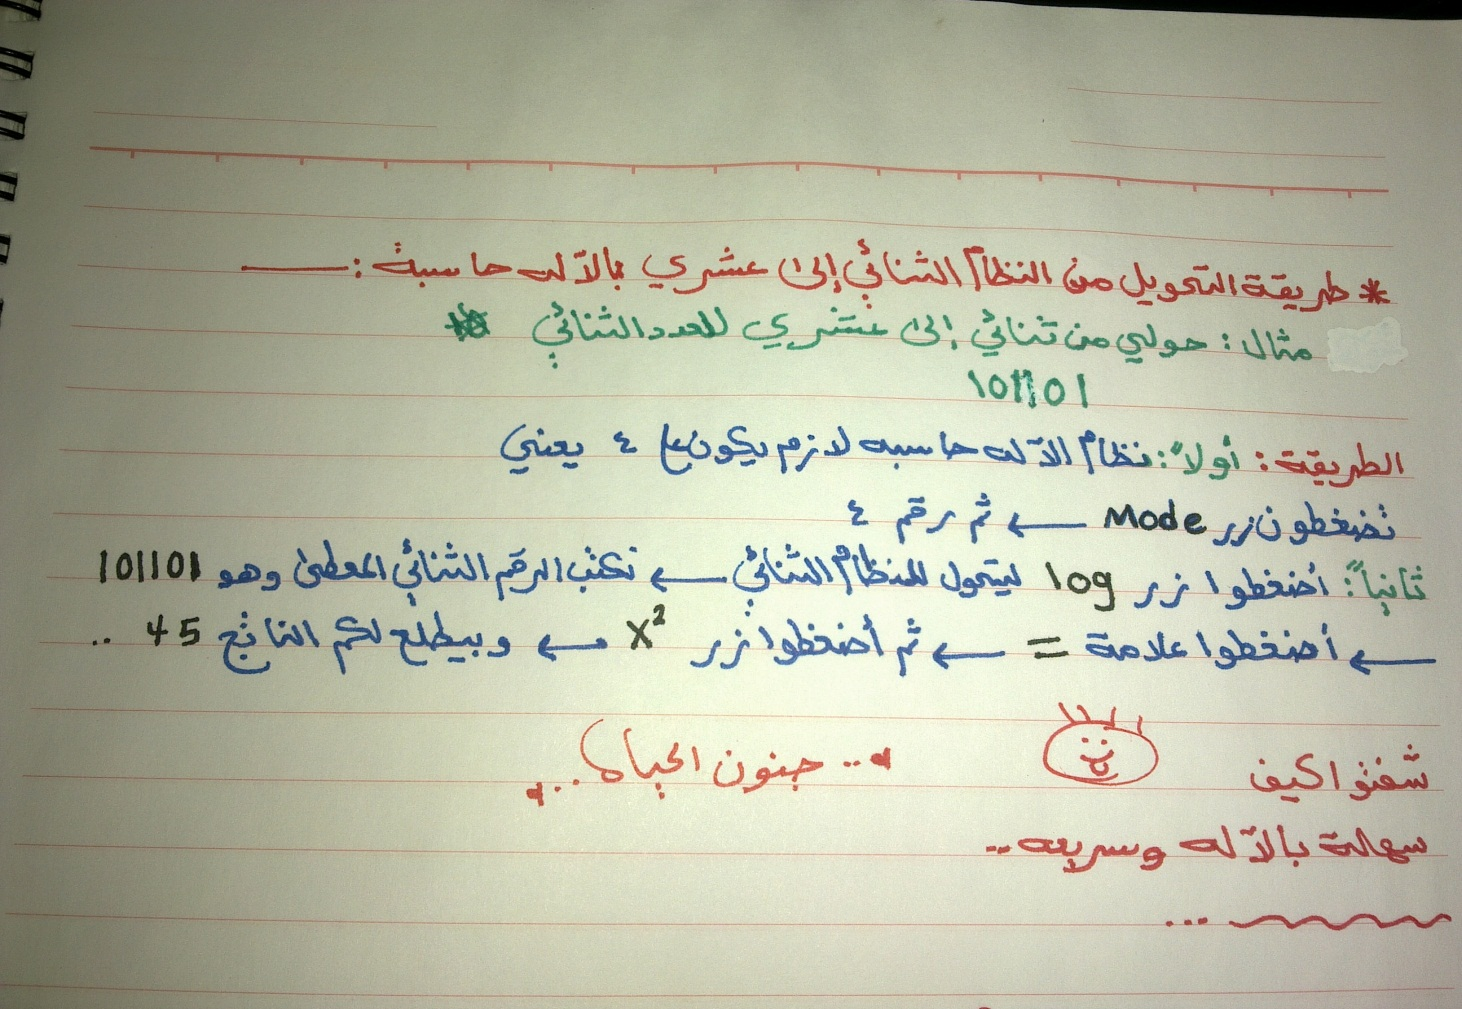 * طريقة التحويل من النظام الثنائي إلى عشري بالآله حاسبة :ــــــ
مثال : حولي من ثنائي إلى عشري للعدد الثنائي
101101
الطريقة : أولاً : نظام الآله حاسبه لازم يكون ع ٤ يعني
تضغطون زر Mode ← ثم رقم ٤
ثانياً : أضغطوا زر log ليتحول للنظام الثنائي ← نكتب الرقم الثنائي المعطى وهو 101101
← أضغطوا علامة = ← ثم أضغطوا زر X² ← وبيطلع لكم الناتج 45 ..
شفتوا كيف
.. جنون الحياه ..
سهالة بالآله وسريعه ..
...